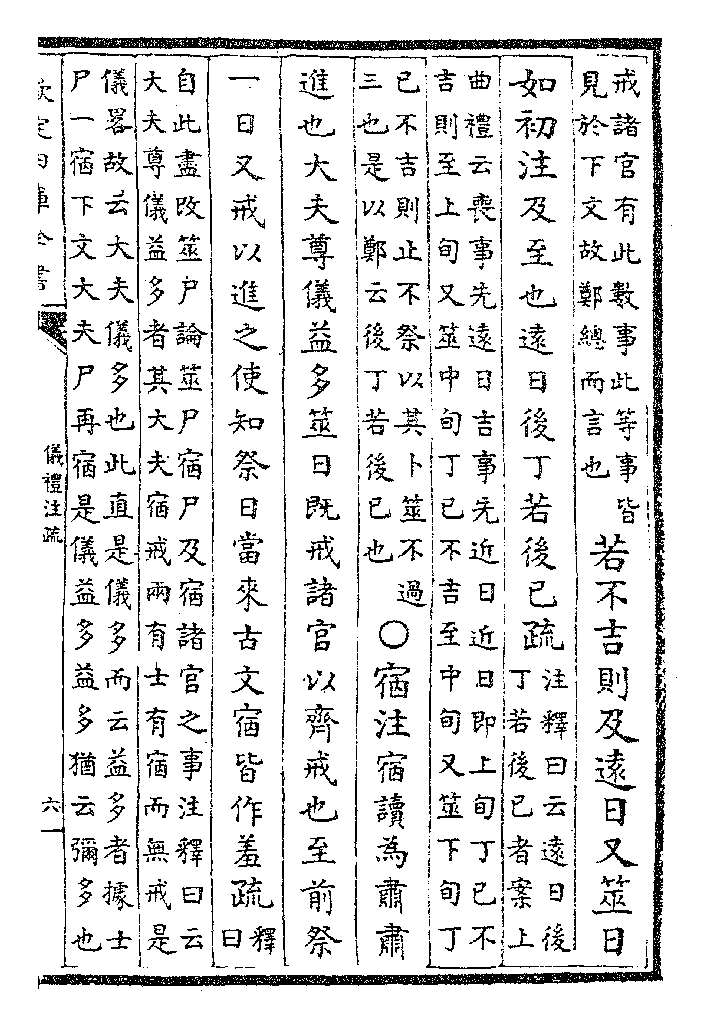 戒諸官有此數事此等事皆
見於下文故鄭總而言也
若不吉則及遠日又筮日
如初注及至也遠日後丁若後已疏
注釋曰云遠日後
丁若後已者案上
曲禮云喪事先遠日吉事先近日近日即上旬丁已不
吉則至上旬又筮中旬丁已不吉至中旬又筮下旬丁
已不吉則止不祭以其卜筮不過
三也是以鄭云後丁若後已也
○宿注宿讀為肅肅
進也大夫尊儀益多筮日既戒諸官以齊戒也至前祭
一日又戒以進之使知祭日當來古文宿皆作羞疏
釋
曰
自此盡改筮尸論筮尸宿尸及宿諸官之事注釋曰云
大夫尊儀益多者其大夫宿戒兩有士有宿而無戒是
儀畧故云大夫儀多也此直是儀多而云益多者據士
尸一宿下文大夫尸再宿是儀益多益多猶云彌多也
欽定四庫全書
儀禮注疏
六